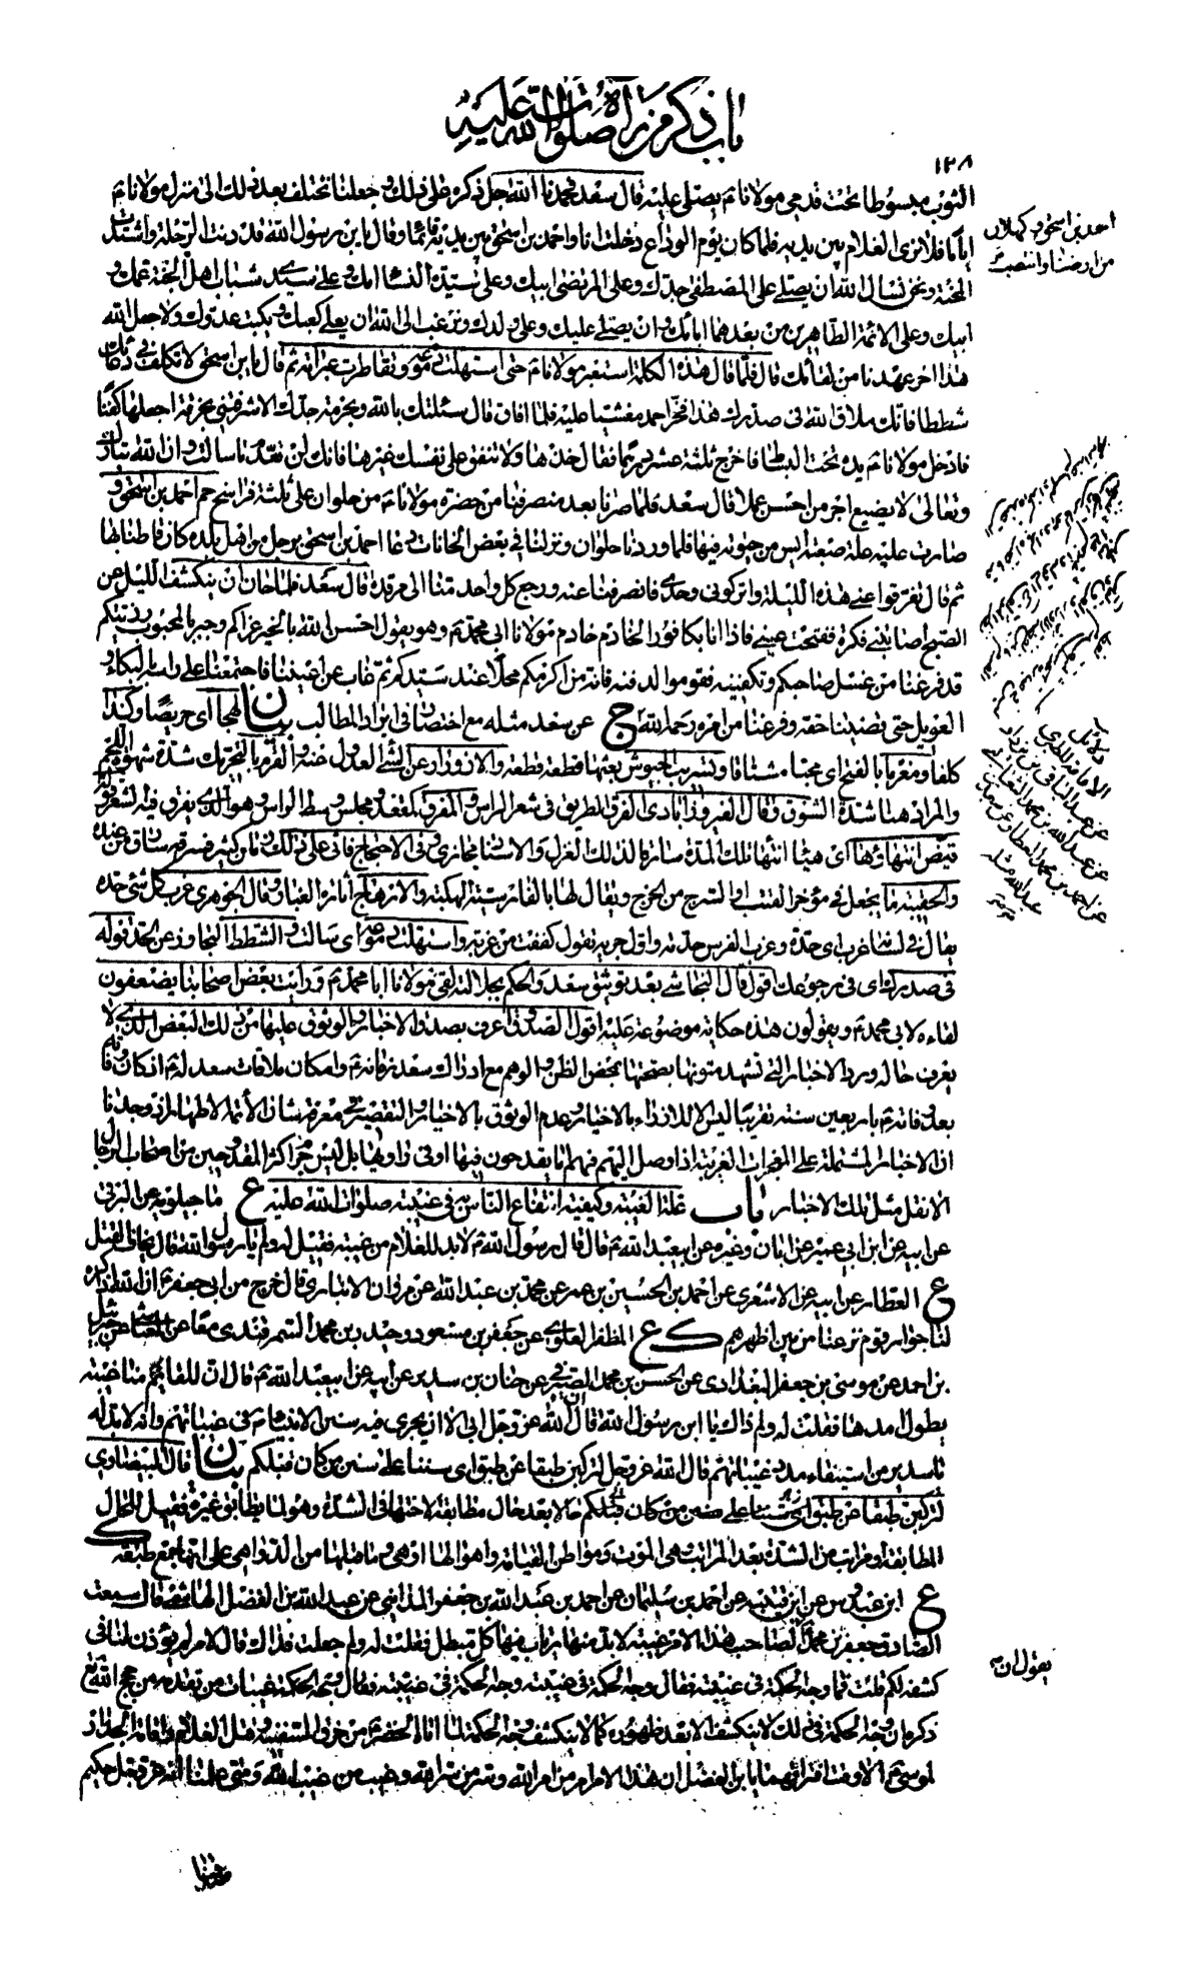 باب ذكر من رآه صلوات الله عليه
١٢٨
الثوب مبسوطا تحت قدمي مولانا ع يصلي عليه قال سعد فحمدنا الله جل ذكره على ذلك وجعلنا نختلف بعد ذلك الى منزل مولانا ع
اياما فلا نرى الغلام بين يديه فلما كان يوم الوداع دخلت انا واحمد بن اسحق بين يديه قائما وقال يا بن رسول الله قد دنت الرحلة واشتدت
المحنة ونحن نسال الله ان يصلي على المصطفى جدك وعلى المرتضى ابيك وعلى سيدة النساء امك وعلى سيدي شباب اهل الجنة عمك و
ابيك وعلى الائمة الطاهرين من بعدهما ابائك وان يصلي عليك وعلى ولدك ونرغب الى الله ان يعلي كعبك ويكبت عدوك ولا جعل الله
هذا اخر عهدنا من لقائك قال فلما قال هذه الكلمة استعبر مولانا ع حتى استهلت دموعه وتقاطرت عبراته ثم قال يا بن اسحق لا تكلف في دعائك
شططا فانك ملاق الله في صدرك هذا فخر احمد مغشيا عليه فلما افاق قال سئلتك بالله وبحرمة جدك الا شرفتني بخرقة اجعلها كفنا
فادخل مولانا ع يده تحت البساط فاخرج ثلثة عشر درهما فقال خذها ولا تنفق على نفسك غيرها فانك لن تعدم ما سالت وان الله تبارك
وتعالى لا يضيع اجر من احسن عملا قال سعد فلما صرنا بعد منصرفنا من حضرة مولانا ع من حلوان على ثلثة فراسخ حم احمد بن اسحق و
صارت عليه علة صعبة ايس من حيوته فيها فلما وردنا حلوان ونزلنا في بعض الخانات دعا احمد بن اسحق برجل من اهل بلده كان قاطنا بها
ثم قال تفرقوا عني هذه الليلة واتركوني وحدي فانصرفنا عنه ورجع كل واحد منا الى مرقده قال سعد فلما حان ان ينكشف الليل عن
الصبح اصابتني فكرة ففتحت عيني فاذا انا بكافور الخادم خادم مولانا ابي محمد ع وهو يقول احسن الله بالخير عزاكم وجبر بالمحبوب رزيتكم
قد فرغنا من غسل صاحبكم وتكفينه فقوموا لدفنه فانه من اكرمكم محلا عند سيدكم ثم غاب عن اعيننا فاجتمعنا على راسه بالبكاء و
العويل حتى قضينا حقه وفرغنا من امره رحمه الله ج عن سعد مثله مع اختصار في ايراد المطالب بيان لهجا اي حريصا وكذا
كلفا ومغرما بالفتح اي محبا مشتاقا وتسريب الجيوش بعثها قطعة قطعة والازورار عن الشئ العدول عنه والقرم بالتحريك شدة شهوة اللحم
والمراد هنا شدة الشوق وقال الفيروزآبادي الفرق الطريق في شعر الراس والمفرق كمقعد ومجلس وسط الراس وهو الذي يفرق فيه الشعر قوله
والحقيبة ما يجعل في مؤخر القتب او السرج من الخرج ويقال لها بالفارسية الهكبة والارهاج اثارة الغبار وقال الجوهري غرب كل شئ حده
يقال في لسانه غرب اي حدة وغرب الفرس حدته واول جريه تقول كففت من غربه واستهلت دموعه اي سالت والشطط التجاوز عن الحد قوله
في صدرك اي في رجوعك اقول قال النجاشي بعد توثيق سعد والحكم بجلالته لقي مولانا ابا محمد ع ورايت بعض اصحابنا يضعفون
لقاءه لابي محمد ع ويقولون هذه حكاية موضوعة عليه اقول الصدوق اعرف بصدق الاخبار والوثوق عليها من ذلك البعض الذي لا
يعرف حاله ورد الاخبار التي تشهد متونها بصحتها بمحض الظن والوهم مع ادراك سعد زمانه ع وامكان ملاقات سعد له ع اذ كان وفاته
بعد وفاته ع باربعين سنة تقريبا ليس الا للازراء بالاخبار وعدم الوثوق بالاخيار والتقصير في معرفة شان الائمة الاطهار اذ وجدنا
ان الاخبار المشتملة على المعجزات الغريبة اذا وصل اليهم فهم اما يقدحون فيها او في راويها بل ليس جرم اكثر المقدوحين من اصحاب الرجال
الا نقل مثل تلك الاخبار باب علة الغيبة وكيفية انتفاع الناس به في غيبته صلوات الله عليه ع ماجيلويه عن البرقي
عن ابيه عن ابن ابي عمير عن ابان وغيره عن ابي عبد الله ع قال قال رسول الله ع لا بد للغلام من غيبة فقيل له ولم يا رسول الله قال يخاف القتل
ع العطار عن ابيه عن الاشعري عن احمد بن الحسين بن عمر عن محمد بن عبد الله عن مروان الانباري قال خرج من ابي جعفر ع ان الله اذا كره
لنا جوار قوم نزعنا من بين اظهرهم ك ع المظفر العلوي عن جعفر بن مسعود وحيدر بن محمد السمرقندي معا عن العياشي عن جبرئيل
بن احمد عن موسى بن جعفر البغدادي عن الحسن بن محمد الصيرفي عن حنان بن سدير عن ابيه عن ابي عبد الله ع قال ان للقائم منا غيبة
يطول امدها فقلت له ولم ذاك يا ابن رسول الله قال ان الله عز وجل ابى الا ان يجري فيه سنن الانبياء ع في غيباتهم وانه لا بد له
يا سدير من استيفاء مدد غيباتهم قال الله عز وجل لتركبن طبقا عن طبق اي سننا على سنن من كان قبلكم بيان قال البيضاوي
لتركبن طبقا عن طبق حالا بعد حال مطابقة لاختها في الشدة وهو لما يطابق غيره فقيل للحال
المطابقة او مراتب من الشدة بعد المراتب هي الموت ومواطن القيامة واهوالها او هي وما قبلها من الدواهي على انها جمع طبقة ك
ع ابن عبدوس عن ابن قتيبة عن احمد بن سليمان عن احمد بن عبد الله بن جعفر المدايني عن عبد الله بن الفضل الهاشمي قال سمعت
الصادق جعفر بن محمد لصاحب هذا الامر غيبة لا بد منها يرتاب فيها كل مبطل فقلت له ولم جعلت فداك قال لامر لم يؤذن لنا في
كشفه لكم قلت فما وجه الحكمة في غيبته فقال وجه الحكمة في غيبته وجه الحكمة في غيبات من تقدمه من حجج الله تع
ذكره ان وجه الحكمة في ذلك لا ينكشف الا بعد ظهوره كما لا ينكشف وجه الحكمة لما اتاه الخضر ع من خرق السفينة وقتل الغلام واقامة الجدار
لموسى ع الا وقت افتراقهما يا بن الفضل ان هذا الامر امر من امر الله وسر من سر الله وغيب من غيب الله ومتى علمنا انه عز وجل حكيم
احمد بن اسحق
دلائل
الامامة للطبري
يقول ان